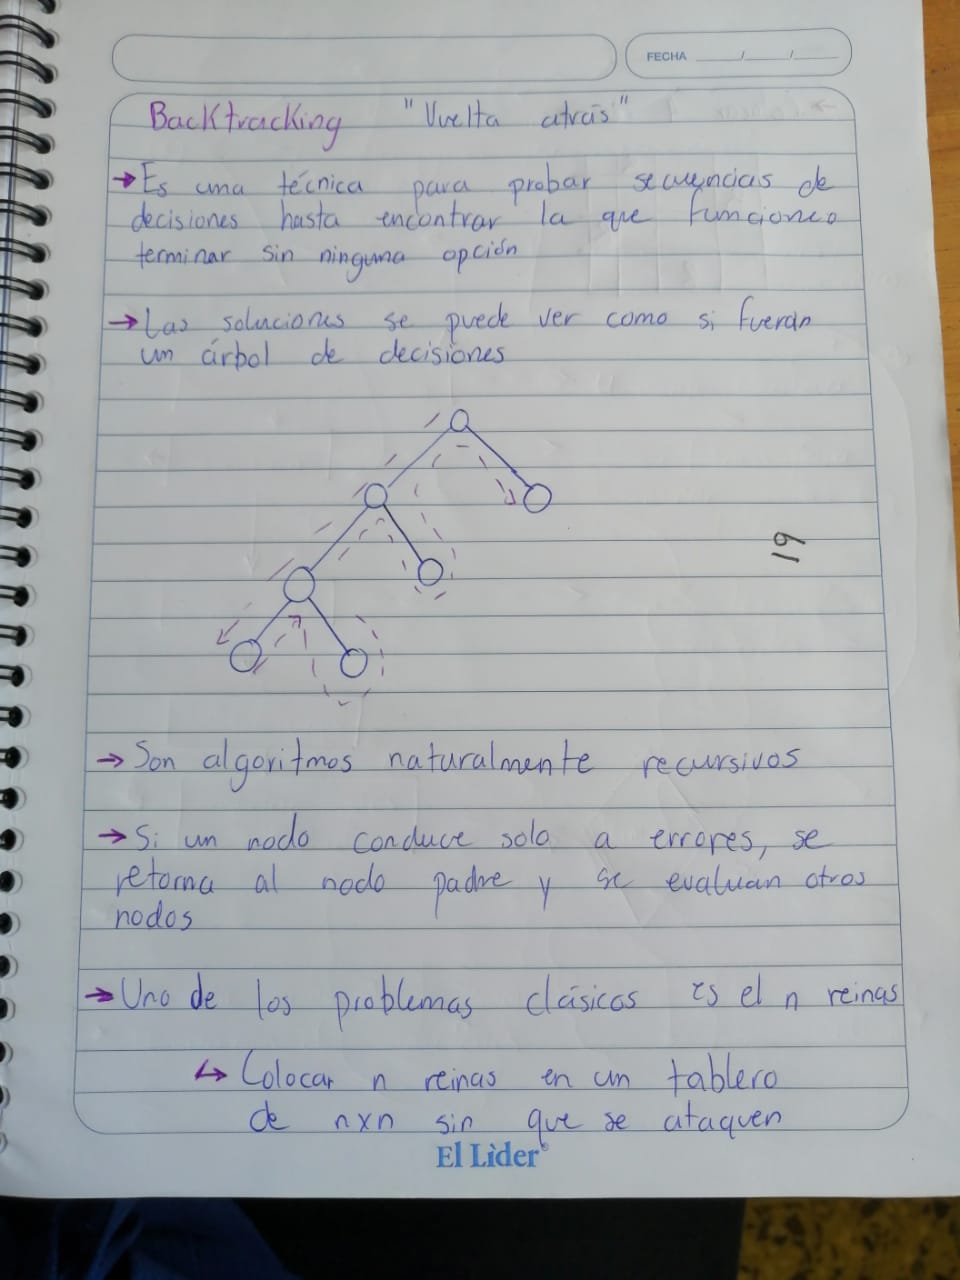 FECHA ____/____/____
Backtracking "Vuelta atrás"
→ Es una técnica para probar secuencias de
decisiones hasta encontrar la que funcione o
terminar sin ninguna opción
→ Las soluciones se puede ver como si fueran
un árbol de decisiones
19
→ Son algoritmos naturalmente recursivos
→ Si un nodo conduce solo a errores, se
retorna al nodo padre y se evaluan otros
nodos
→ Uno de los problemas clásicos es el n reinas
↳ Colocar n reinas en un tablero
de nxn sin que se ataquen
El Lìder®